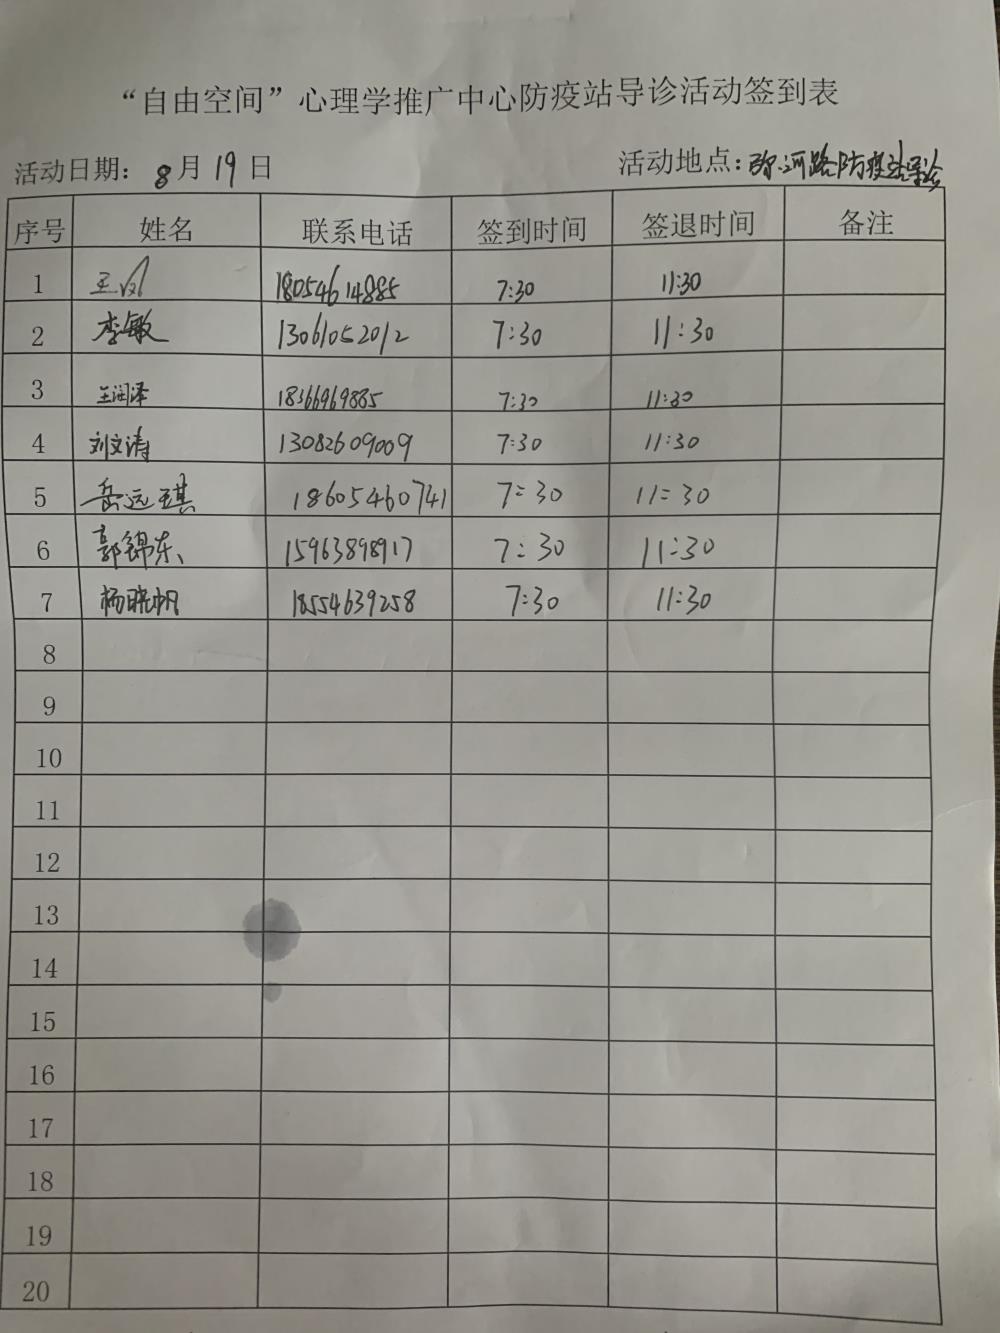 “自由空间”心理学推广中心防疫站导诊活动签到表
活动日期: 8 月 19 日 活动地点: 弥河路防疫站导诊
序号 姓名 联系电话 签到时间 签退时间 备注
1 王凤 18054614885 7:30 11:30
2 李敏 13061052012 7:30 11:30
3 王润泽 18366969885 7:30 11:30
4 刘文涛 13082609009 7:30 11:30
5 岳远琪 18605460741 7:30 11:30
6 郭锦东 15963898917 7:30 11:30
7 杨晓帆 18554639258 7:30 11:30
8
9
10
11
12
13
14
15
16
17
18
19
20